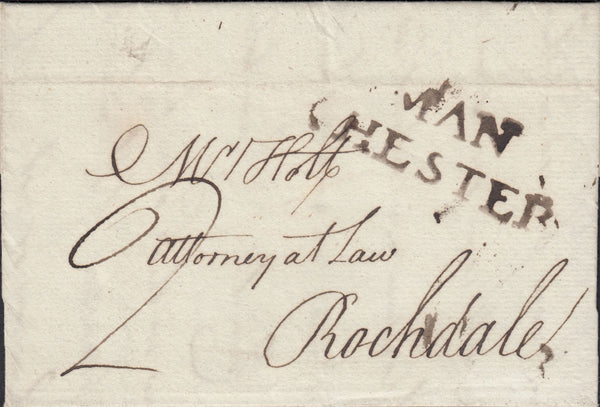 MAN
CHESTER
Mr Holt
2
attorney at Law
Rochdale